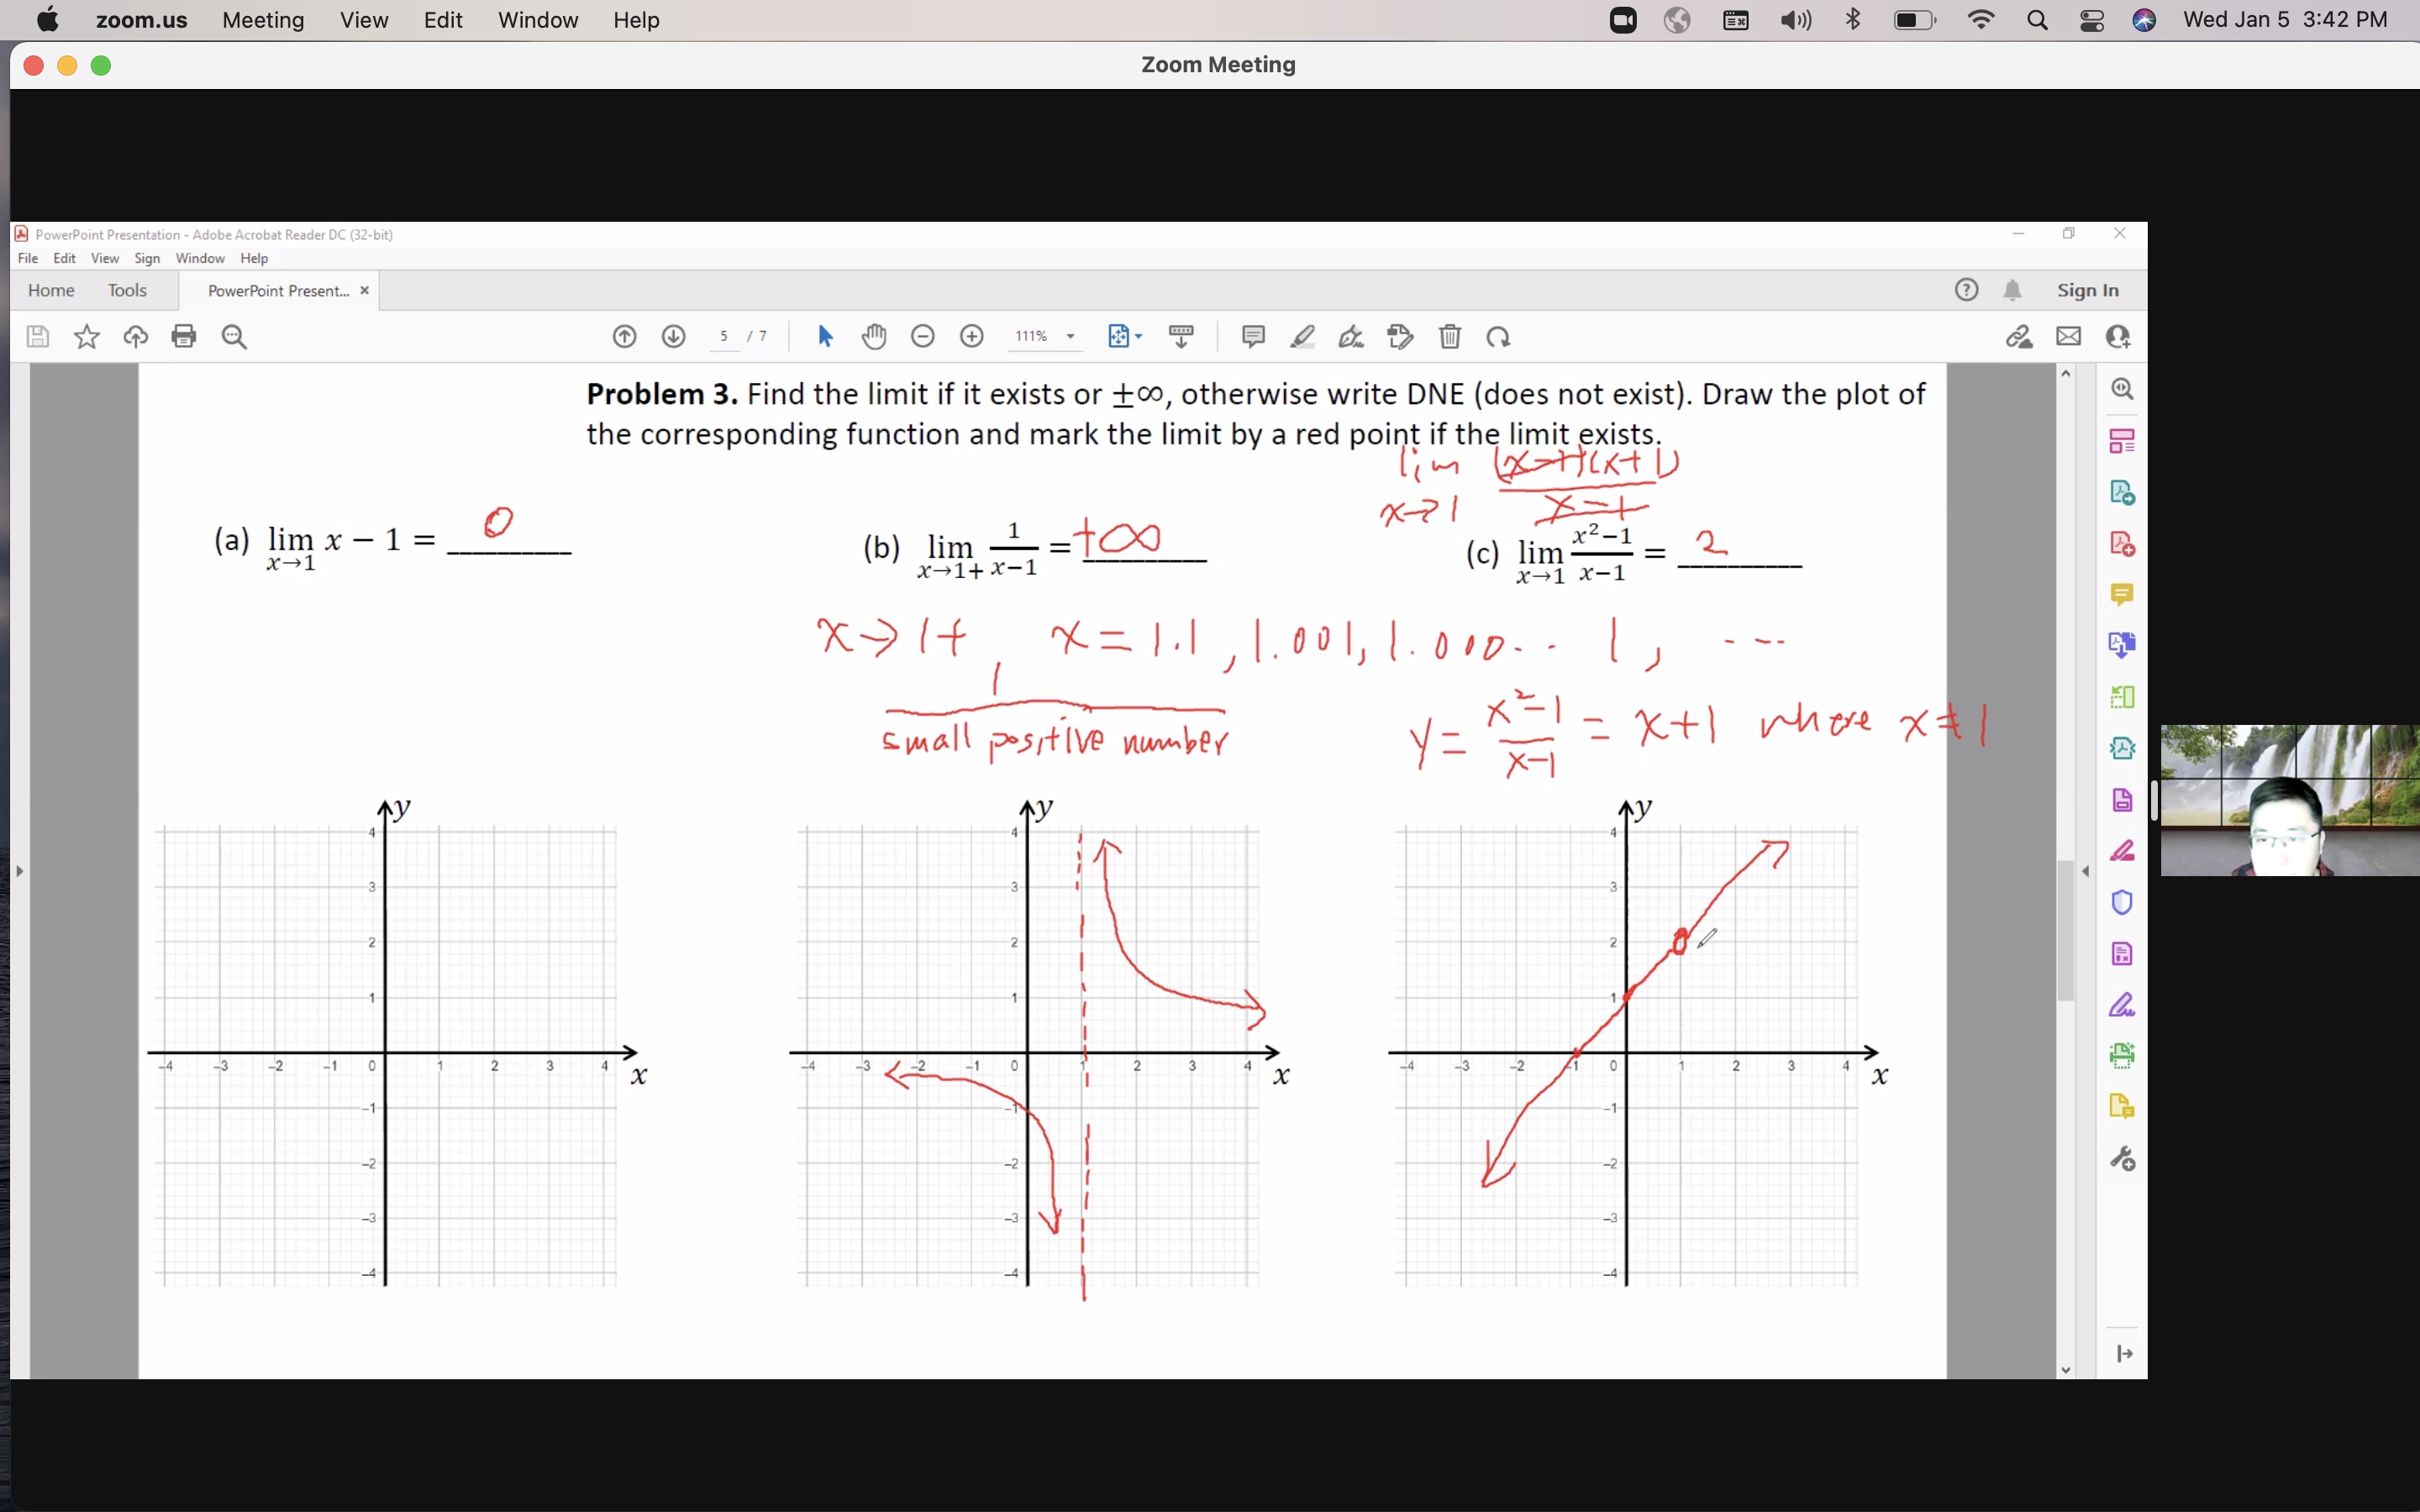 zoom.us Meeting View Edit Window Help Wed Jan 5 3:42 PM
Zoom Meeting
PowerPoint Presentation - Adobe Acrobat Reader DC (32-bit)
File Edit View Sign Window Help
Home Tools PowerPoint Present... × Sign In
5 / 7 111%
Problem 3. Find the limit if it exists or ±∞, otherwise write DNE (does not exist). Draw the plot of
the corresponding function and mark the limit by a red point if the limit exists.
lim x→1 (x-1)(x+1) / x-1
(a) lim x→1 x − 1 = 0
(b) lim x→1+ 1/x−1 = +∞
(c) lim x→1 x²−1/x−1 = 2
x → 1+ x = 1.1, 1.001, 1.000.. 1, ...
1
small positive number
y = x²-1/x-1 = x+1 where x≠1
y
4
3
2
1
-4 -3 -2 -1 0 1 2 3 4 x
-1
-2
-3
-4
y
4
3
2
1
-4 -3 -2 -1 0 1 2 3 4 x
-1
-2
-3
-4
y
4
3
2
1
-4 -3 -2 -1 0 1 2 3 4 x
-1
-2
-3
-4